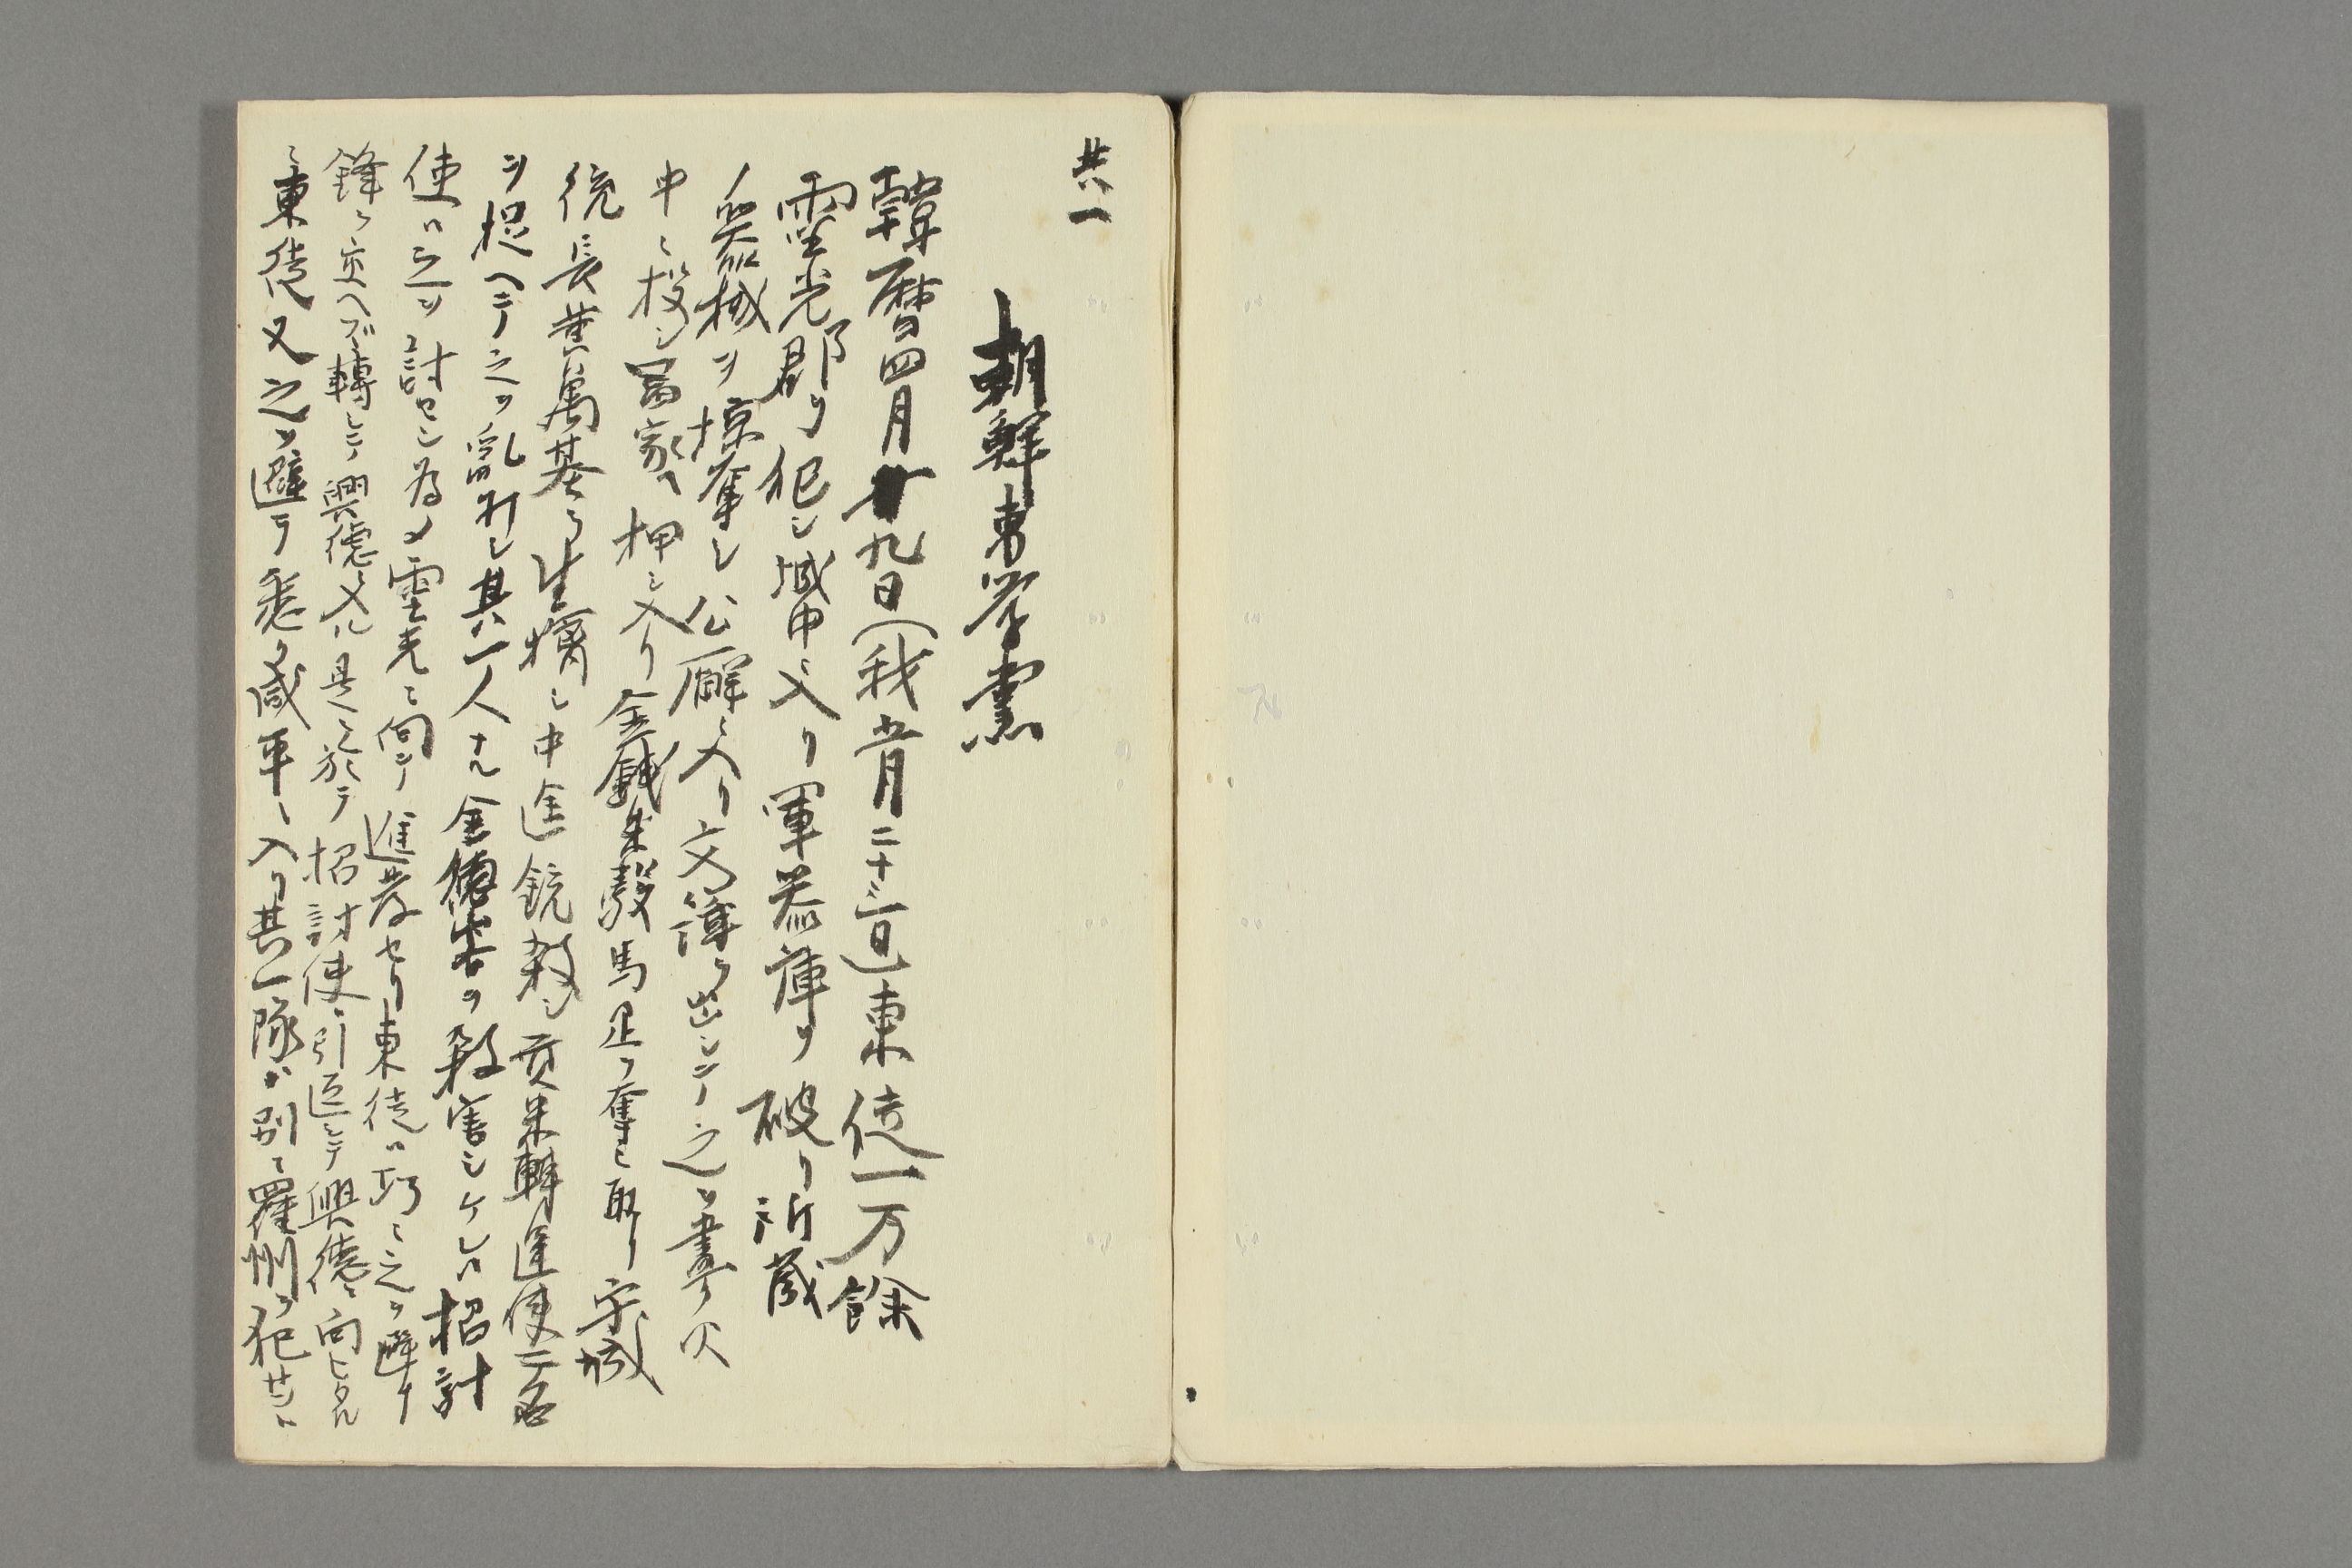 其一
朝鮮東学党
韓暦四月廿九日(我五月二十三日)東徒一万餘
霊光郡ヲ犯シ城中ニ入リ軍器庫ヲ破リ所蔵
ノ器械ヲ掠奪シ公廨ニ入リ文簿ヲ出シテ之ヲ書ク火
中ニ投シ冨家ヘ押シ入リ金銭米穀馬疋ヲ奪ヒ取リ守城
統長黄萬基ヲ生擒シ中途銃殺シ貢米轉運使二名
ヲ捉ヘテ之ヲ乱打シ其一人ナル金徳容ヲ殺害シケレハ招討
使ハ之ヲ討セン為メ霊光ニ向テ進発セリ東徒ハ巧ニ之ヲ避ケ
鋒ヲ交ヘズ轉シテ興徳ニ入ル是ニ於テ招討使ハ引返シテ興徳ニ向ヒタル
ニ東徒又之ヲ避テ悉ク咸平ニ入リ其一隊ガ別ニ羅州ヲ犯サント